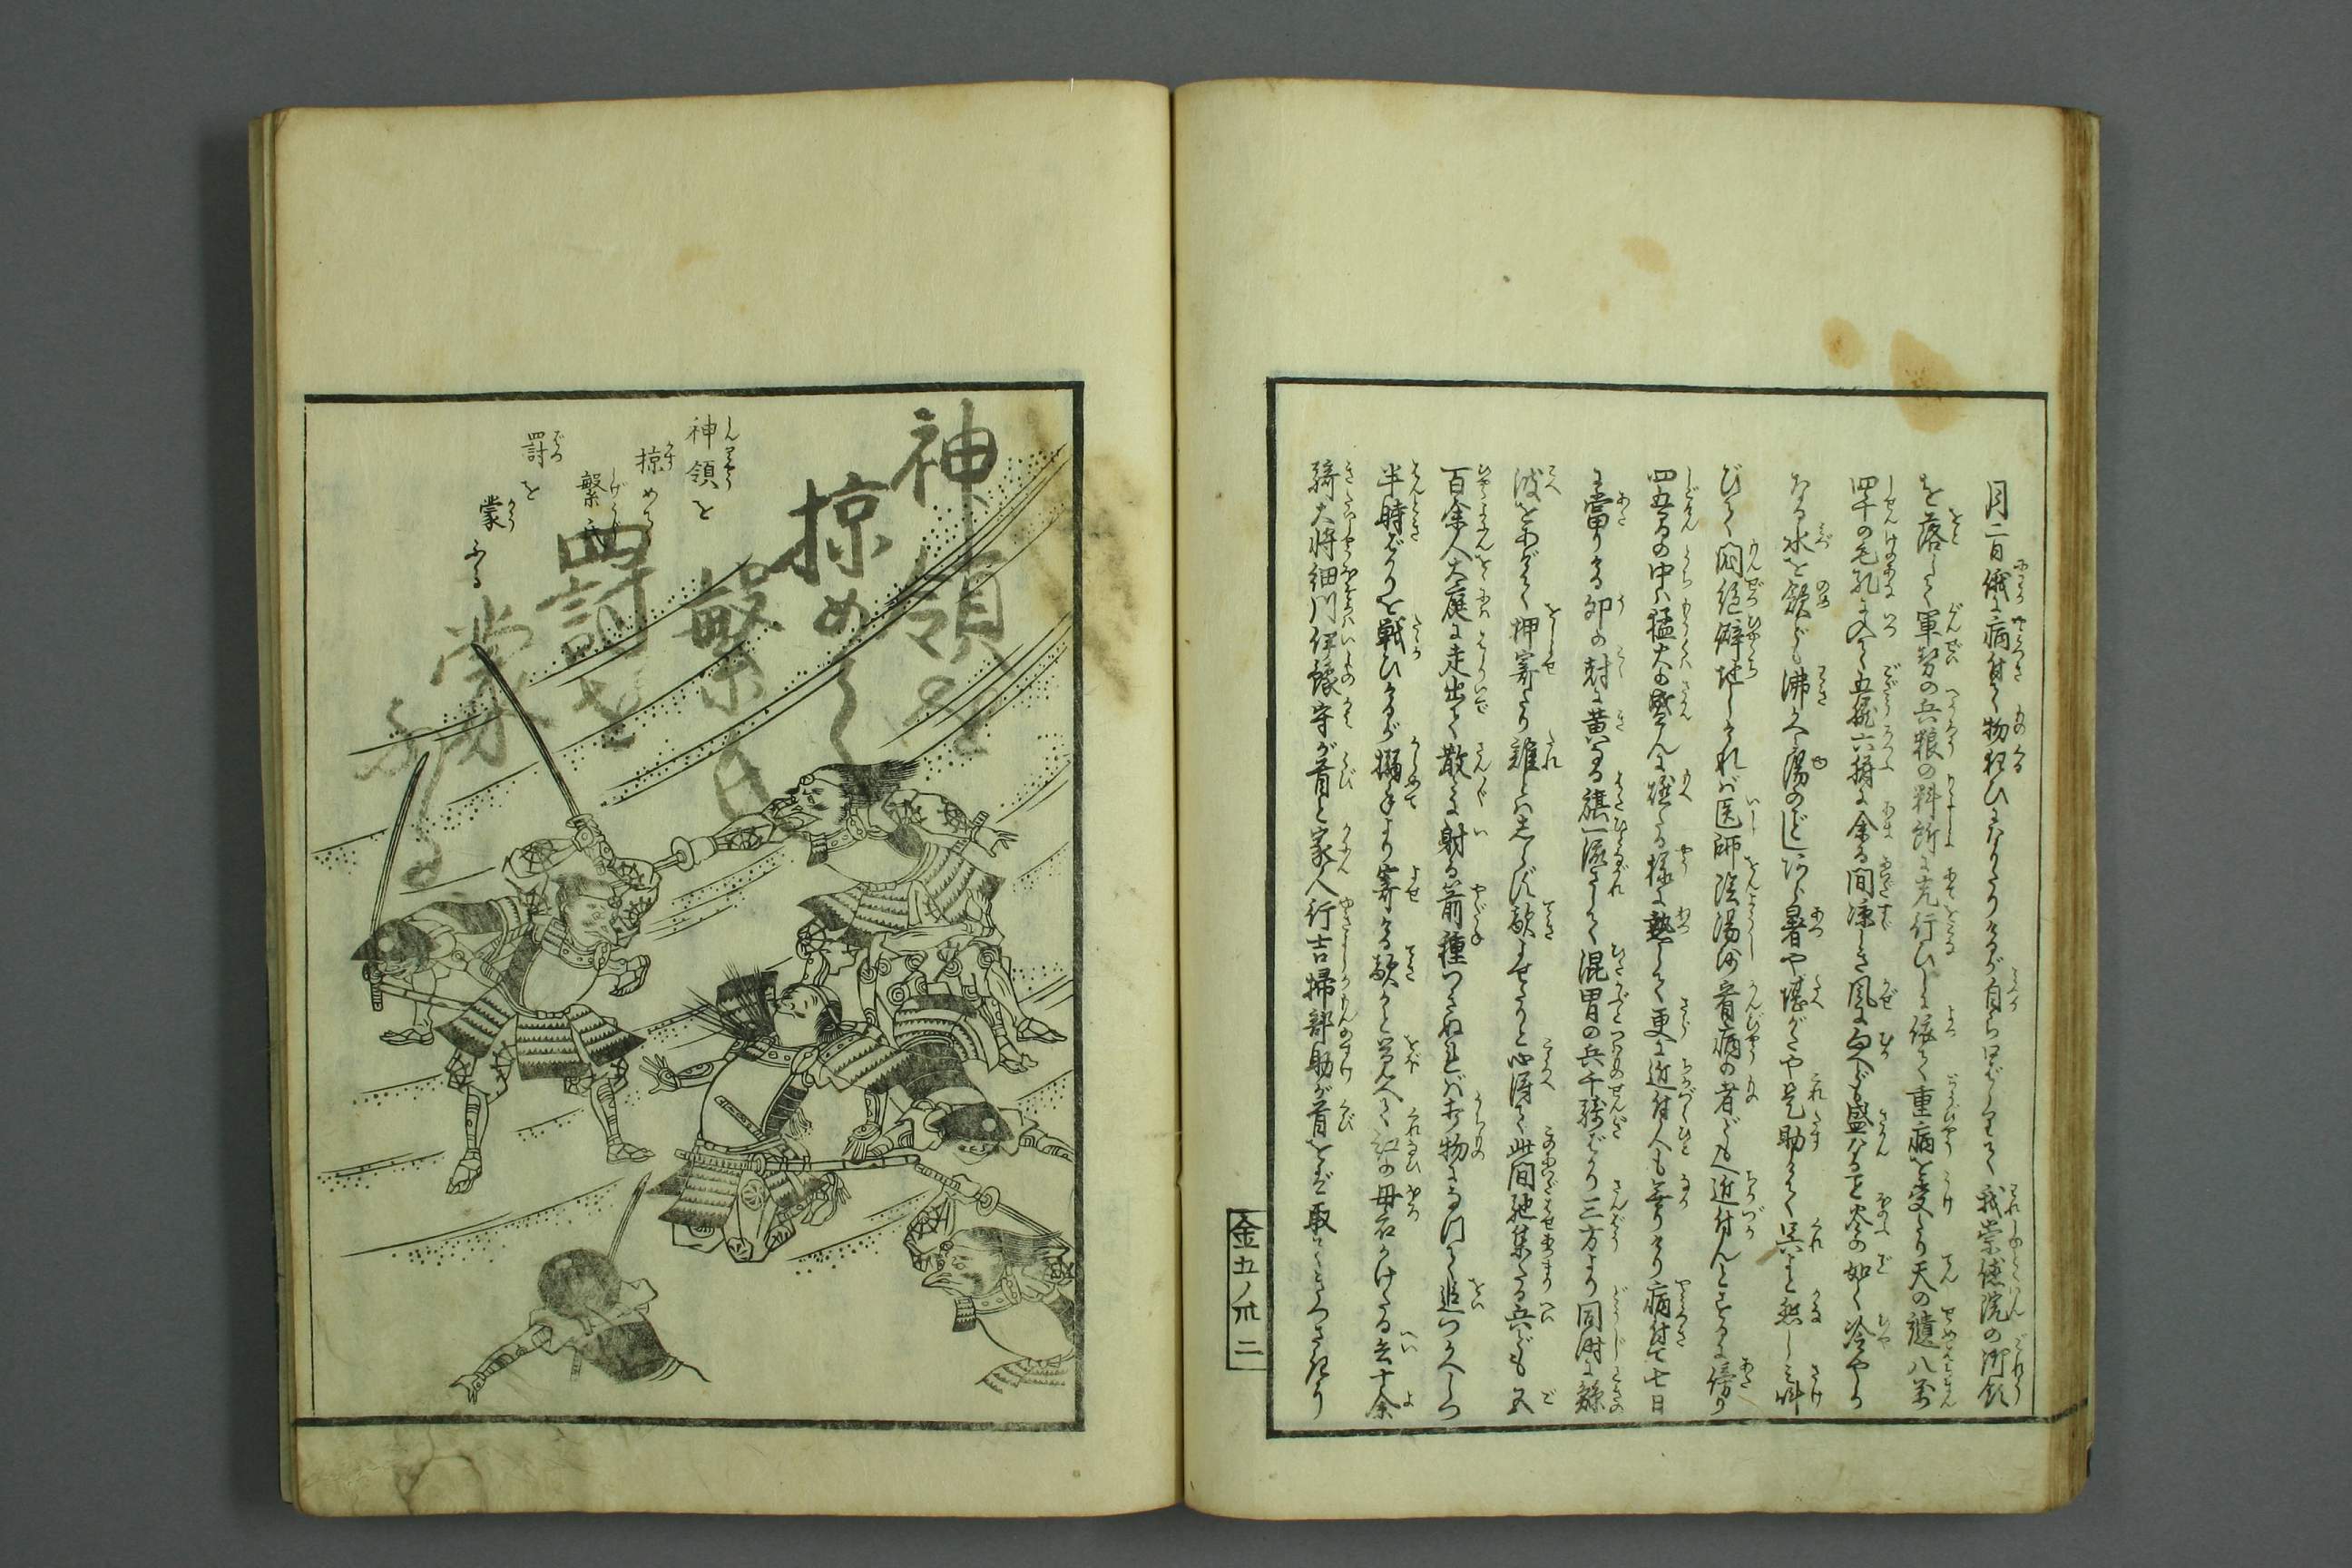 月二日俄に病付て物狂ひになりたりけるが自ら口ばしりて我崇徳院の御領
を落して軍勢の兵粮の料所に充行ひしに依て重病を受たり天の譴八万
四千の毛孔に入て五臓六腑に余る間凉しき風に向へども盛なる火炎の如く冷やか
なる水を飲ども沸かへる湯のごとしあら暑や堪がたや是助けてくれよと悲しみ叫
びて悶絶躃地しければ医師陰陽師看病の者ども近付んとするに傍り
四五間の中は猛火の盛んに燃たる様に熱して更に近付人も無りけり病付て七日
に當りける卯の刻に黄なる旗一流さして混冑の兵千騎ばかり三方より同時に鯨
波をあげて押寄たり誰とは知らず敵よせたりと心得て此間馳集たる兵ども五
百余人大庭に走出て散々に射る箭種つきぬれば打物になりて追つかへしつ
半時ばかりぞ戦ひけるが搦手より寄ける敵かと覚へて紅の母衣かけたる兵十余
騎大将細川伊豫守が首と家人行吉掃部助が首とを取て
金五ノ卅二
神領を
掠めて
繁氏
罰を
蒙
ふる
神領を
掠めて
繁
罰を
蒙
ふる